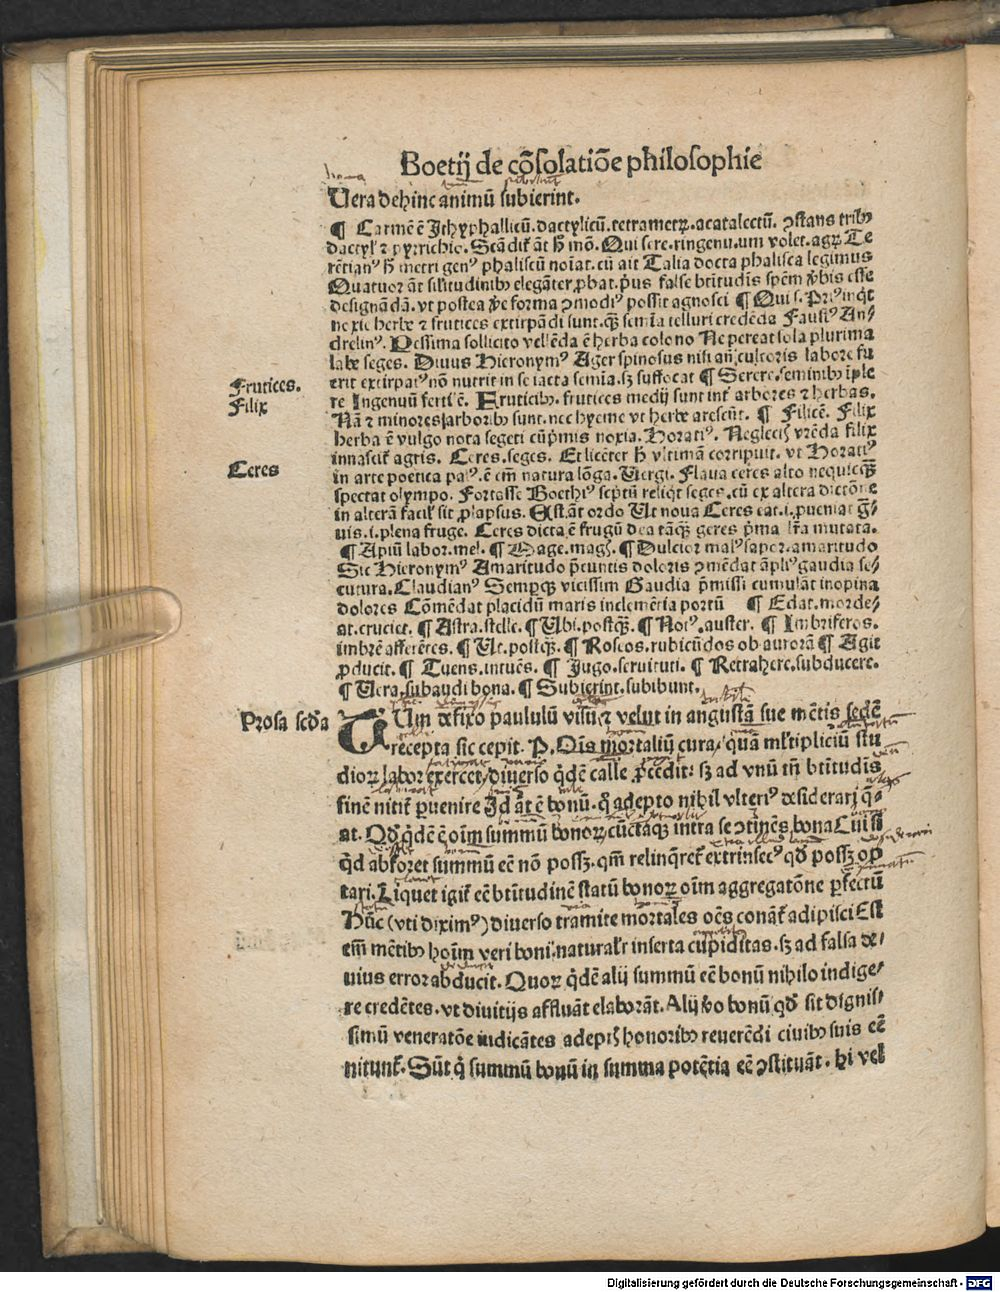 Boetij de cõsolatiõe philosophie
Uera dehinc animũ subierint.
¶ Carmẽ ẽ Ithyphallicũ. dactylicũ. tetrametꝝ. acatalectũ. ꝯstans tribꝰ
dactyl' ⁊ pyrrichio. Scãdit̃ ãt h̃ mõ. Qui sere. ringenu. um volet. agꝝ Te
rẽtianꝰ h̃ metri genꝰ phaliscũ noĩat. cũ ait Talia docta phalisca legimus
Quatuor ãt silitudinibꝰ elegãter ꝓbat. pͥus false btĩtudĩs spẽm ꝟbis esse
designãdã. vt postea ꝟe forma ꝯmodiꝰ possit agnosci ¶ Qui s. Priꝰ inqͥt
noxie herbe ⁊ frutices extirpãdi sunt. qͣꝫ semĩa telluri credẽda Faustꝰ An⸗
drelinꝰ. Pessima sollicito vellẽda ẽ herba colono Ne pereat sola plurima
labe seges. Diuus Hieronymꝰ Ager spinosus nisi añ cultoris labore fu
Frutices.
erit extirpatꝰ nõ nutrit in se iacta semĩa. sꝫ suffocat ¶ Serere. seminibꝰ ĩple
Filix
re Ingenuũ fertĩ ẽ. Fruticibꝰ. frutices medij sunt int̃ arbores ⁊ herbas.
Nã ⁊ minores arboribꝰ sunt. nec hyeme vt herbe arescũt. ¶ Filicẽ. Filix
herba ẽ vulgo nota segeti cũpͥmis noxia. Horatiꝰ. Neglectꝭ vrẽda filix
Ceres
innascit̃ agris. Ceres. seges. Et licẽter h̃ vltimã corripuit. vt Horatiꝰ
in arte poetica palꝰ. ẽ em̃ natura lõga. Uirgi. Flaua ceres alto nequicqͣꝫ
spectat olympo. Fortasse Boethiꝰ scptũ reliqͥt seges. cũ ex altera dictõne
in alterã facil' sit ꝓlapsus. Est. ãt ordo Ut noua Ceres eat. i. ꝓueniat gͣ⸗
uis. i. plena fruge. Ceres dicta ẽ frugũ dea tãqͣꝫ geres pͥma lr̃a mutata.
¶ Apiũ labor. mel. ¶ Mage. magꝭ. ¶ Dulcior malꝰ sapor. amaritudo
Sic Hieronymꝰ Amaritudo pͥcuntis doloris ꝯmẽdat ãpliꝰ gaudia se⸗
cutura. Claudianꝰ Semperqꝫ vicissim Gaudia pͥmissi cumulãt inopina
dolores Cõmẽdat placidũ maris inclemẽtia portũ ¶ Edat. morde⸗
at. cruciet. ¶ Astra. stelle. ¶ Ubi. postqͣꝫ. ¶ Notꝰ. auster. ¶ Imbriferos.
imbrẽ afferẽtes. ¶ Ut. postqͣꝫ. ¶ Roseos. rubicũdos ob aurorã ¶ Agit
ꝓducit. ¶ Tuens. intuẽs. ¶ Jugo. seruituti. ¶ Retrahere. subducere.
¶ Uera. subaudi bona. ¶ Subierint. subibunt.
Prosa scd̃a
TUm defixo paululũ visu ⁊ velut in angustã sue mẽtis sedẽ
recepta sic cepit. P. Oĩs mortaliũ cura, quã ml̃tipliciũ stu
dioꝝ labor exercet, diuerso qͥdẽ calle ꝓcedit: sꝫ ad vnũ tñ btĩtudĩs
finẽ nitit̃ puenire Id ãt ẽ bonũ. qͦ adepto nihil vlteriꝰ desiderari q̃⸗
at. Qd̃ qͥdẽ ẽ oĩm summũ bonoꝝ cũctaqꝫ intra se ꝯtinẽs bona Cui si
qͥd abforet summũ eẽ nõ possꝫ. qm̃ relinqͣret̃ extrinsecꝰ qd̃ possꝫ op
tari. Liquet igit̃ eẽ btĩtudinẽ statũ bonoꝝ oĩm aggregatõne pͥfectũ
Hũc (vti diximꝰ) diuerso tramite mortales oẽs conãt̃ adipisci Est
em̃ mẽtibꝰ hoĩm veri boni naturalr̃ inserta cupiditas. sꝫ ad falsa de⸗
uius error abducit. Quoꝝ qͥdẽ alij summũ eẽ bonũ nihilo indige⸗
re credẽtes. vt diuitijs affluãt elaborãt. Alij ꝟo bonũ qd̃ sit dignis⸗
simũ veneratõe iudicãtes adeptꝭ honoribꝰ reuerẽdi ciuibꝰ suis eẽ
nitunt̃. Sũt qͥ summũ bonũ in summa potẽtia eẽ ꝯstituãt. hi vel
Digitalisierung gefördert durch die Deutsche Forschungsgemeinschaft - DFG